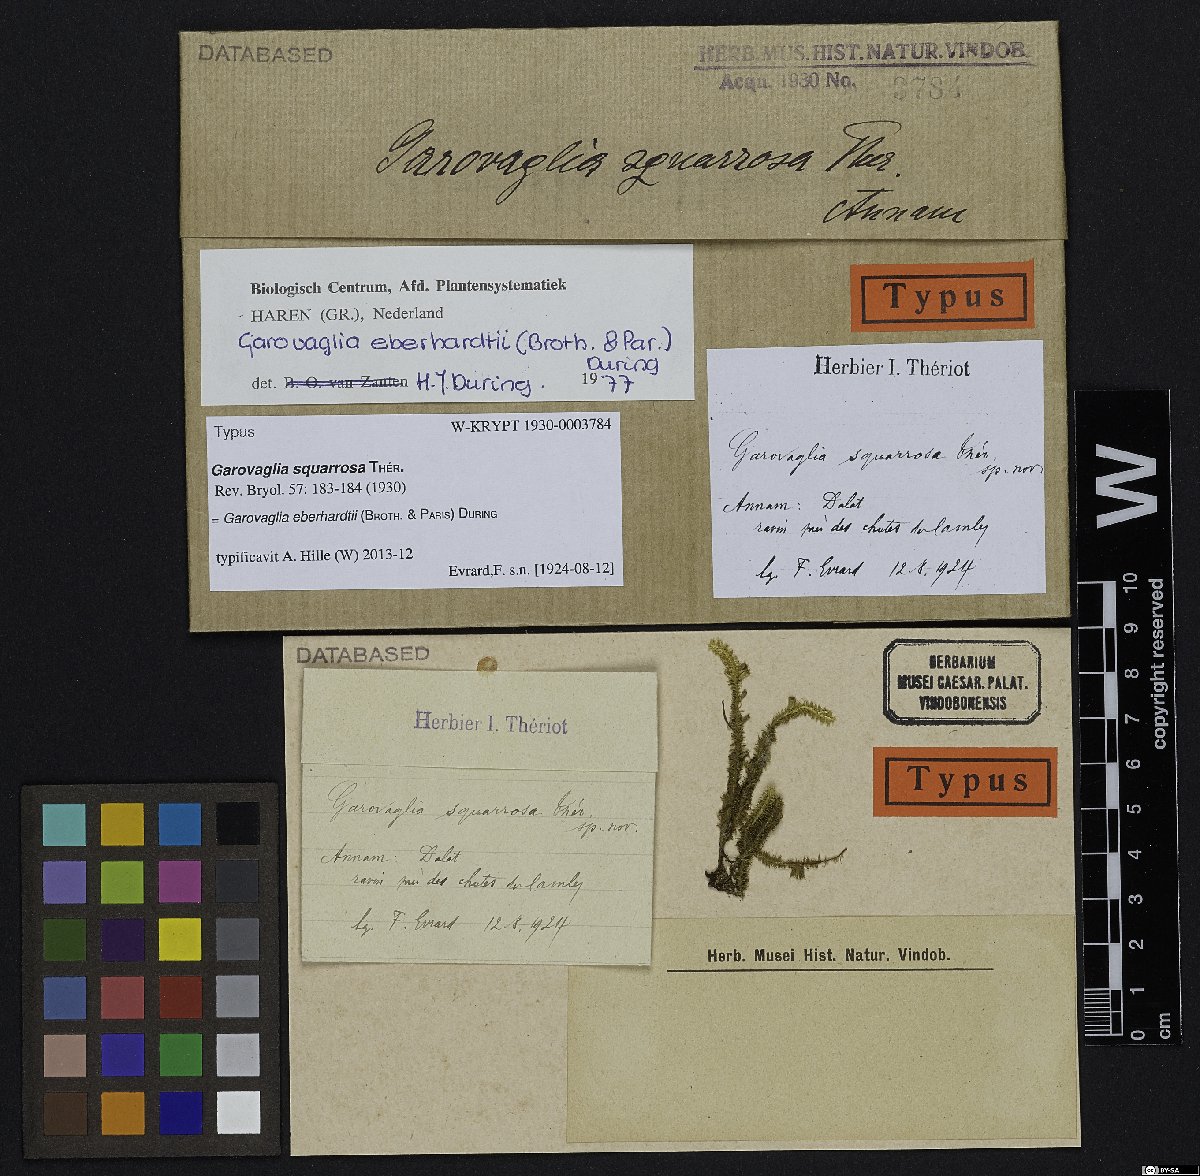 DATABASED
HERB. MUS. HIST. NATUR. VINDOB.
Acqu. 1930 No. 3784
Garovaglia squarrosa Ther.
Annam
Biologisch Centrum, Afd. Plantensystematiek
HAREN (GR.), Nederland
Garovaglia eberhardtii (Broth. & Par.)
During
det. B. O. van Zanten H.J. During. 1977
Typus W-KRYPT 1930-0003784
Garovaglia squarrosa THÉR.
Rev. Bryol. 57: 183-184 (1930)
= Garovaglia eberhardtii (BROTH. & PARIS) DURING
typificavit A. Hille (W) 2013-12
Evrard,F. s.n. [1924-08-12]
Typus
Herbier I. Thériot
Garovaglia squarrosa Thér.
sp. nov.
Annam: Dalat
ravin près des chutes du
lg. F. Evrard 12.8.1924
DATABASED
Herbier I. Thériot
Garovaglia squarrosa Thér.
sp. nov.
Annam: Dalat
ravin près des chutes du
lg. F. Evrard 12.8.1924
HERBARIUM
MUSEI CAESAR. PALAT.
VINDOBONENSIS
Typus
Herb. Musei Hist. Natur. Vindob.
W
10
9
8
7
6
5
4
3
2
1
0
cm
copyright reserved
CC BY-SA